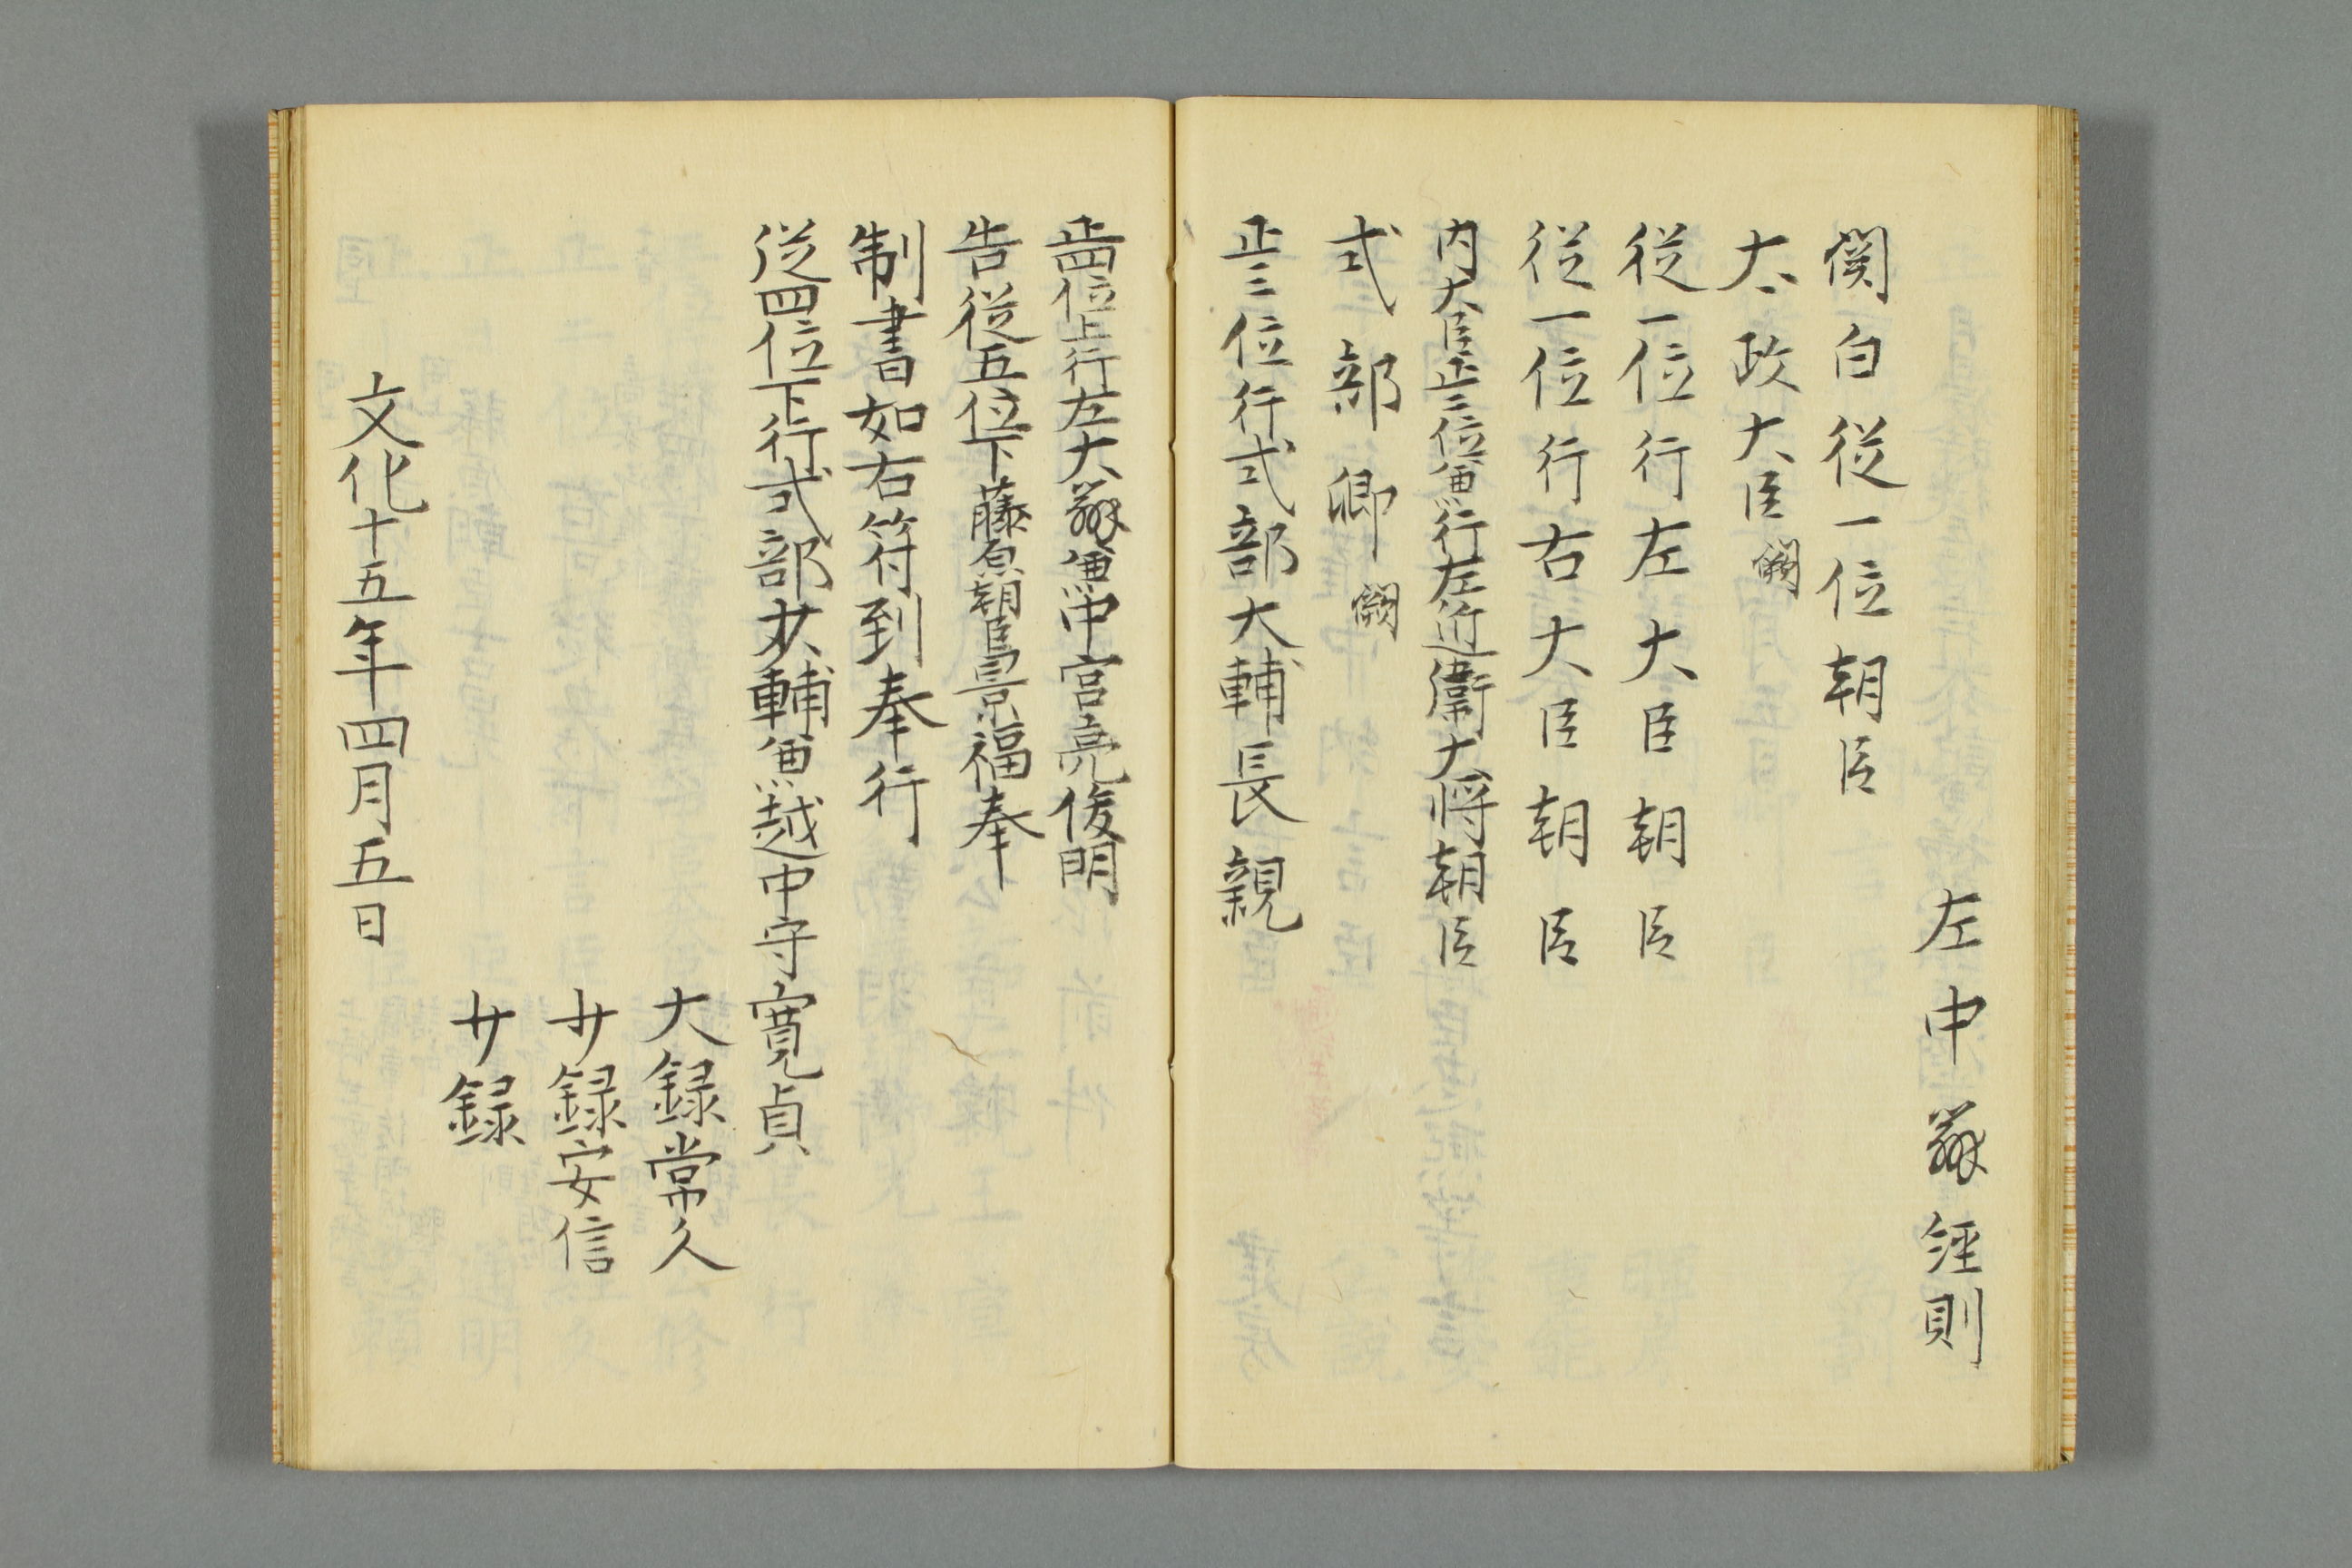 左中辨経則
関白従一位朝臣
太政大臣闕
従一位行左大臣朝臣
従一位行右大臣朝臣
内大臣正二位兼行左近衛大将朝臣
式部卿闕
正三位行式部大輔長親
正四位上行左大辨兼中宮亮俊明
告従五位下藤原朝臣景福奉
制書如右符到奉行
従四位下行式部少輔兼越中守寛貞
大録常久
少録安信
少録
文化十五年四月五日